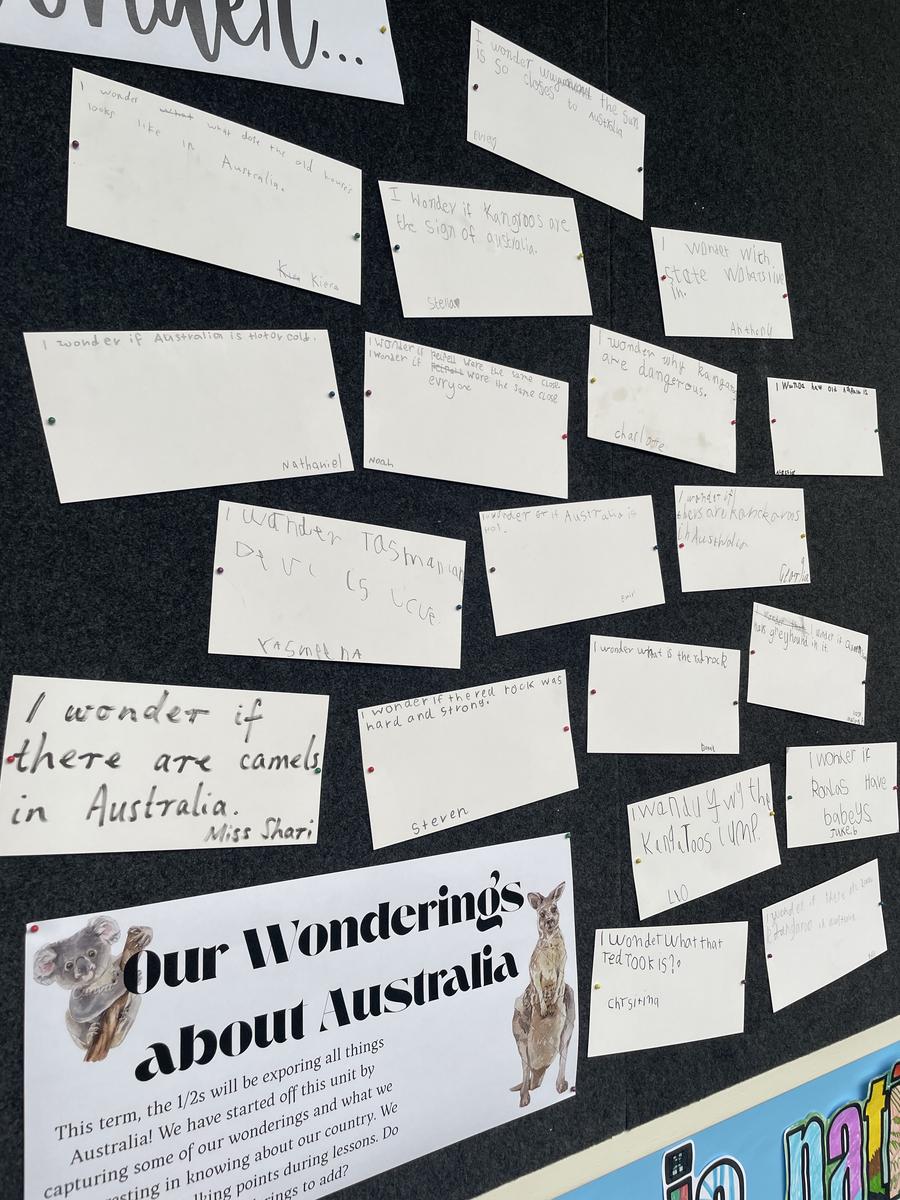 onder...
I wonder the sun
is so closes to
Australia
I wonder what what dose the old houses
looks like in Australia.
Kiera
I wonder if Kangroos are
the sign of australia.
Stella
I wonder with
state wobats live
in.
Anthony
I wonder if Australia is hot or cold.
Nathaniel
I wonder if were the same close
I wonder if were the same close
evryone
Noah
I wonder why kangaroos
are dangerous.
charlotte
I Wonda how old Australia is
I wander Tasmanian
Devil is
Yasmeena
I wonder or if Australia is
hot.
Emir
I wonder if
thers are kanckaroos
in Australia
Georgia
I wonder what is the red rock
I wonder that I wonder if
has greyhound in it.
I wonder if
there are camels
in Australia.
Miss Shari
I wonder if the red rock was
hard and strong.
Steven
I wonker if
Roolas Have
babeys
Jake.b
the
KangaToos Jump.
Leo
I wonder what that
red rook is?
chrsitina
I wonder if there
kangaroo in
Our Wondering's
about Australia
This term, the 1/2s will be exporing all things
Australia! We have started off this unit by
capturing some of our wonderings and what we
esting in knowing about our country. We
lking points during lessons. Do
erings to add?